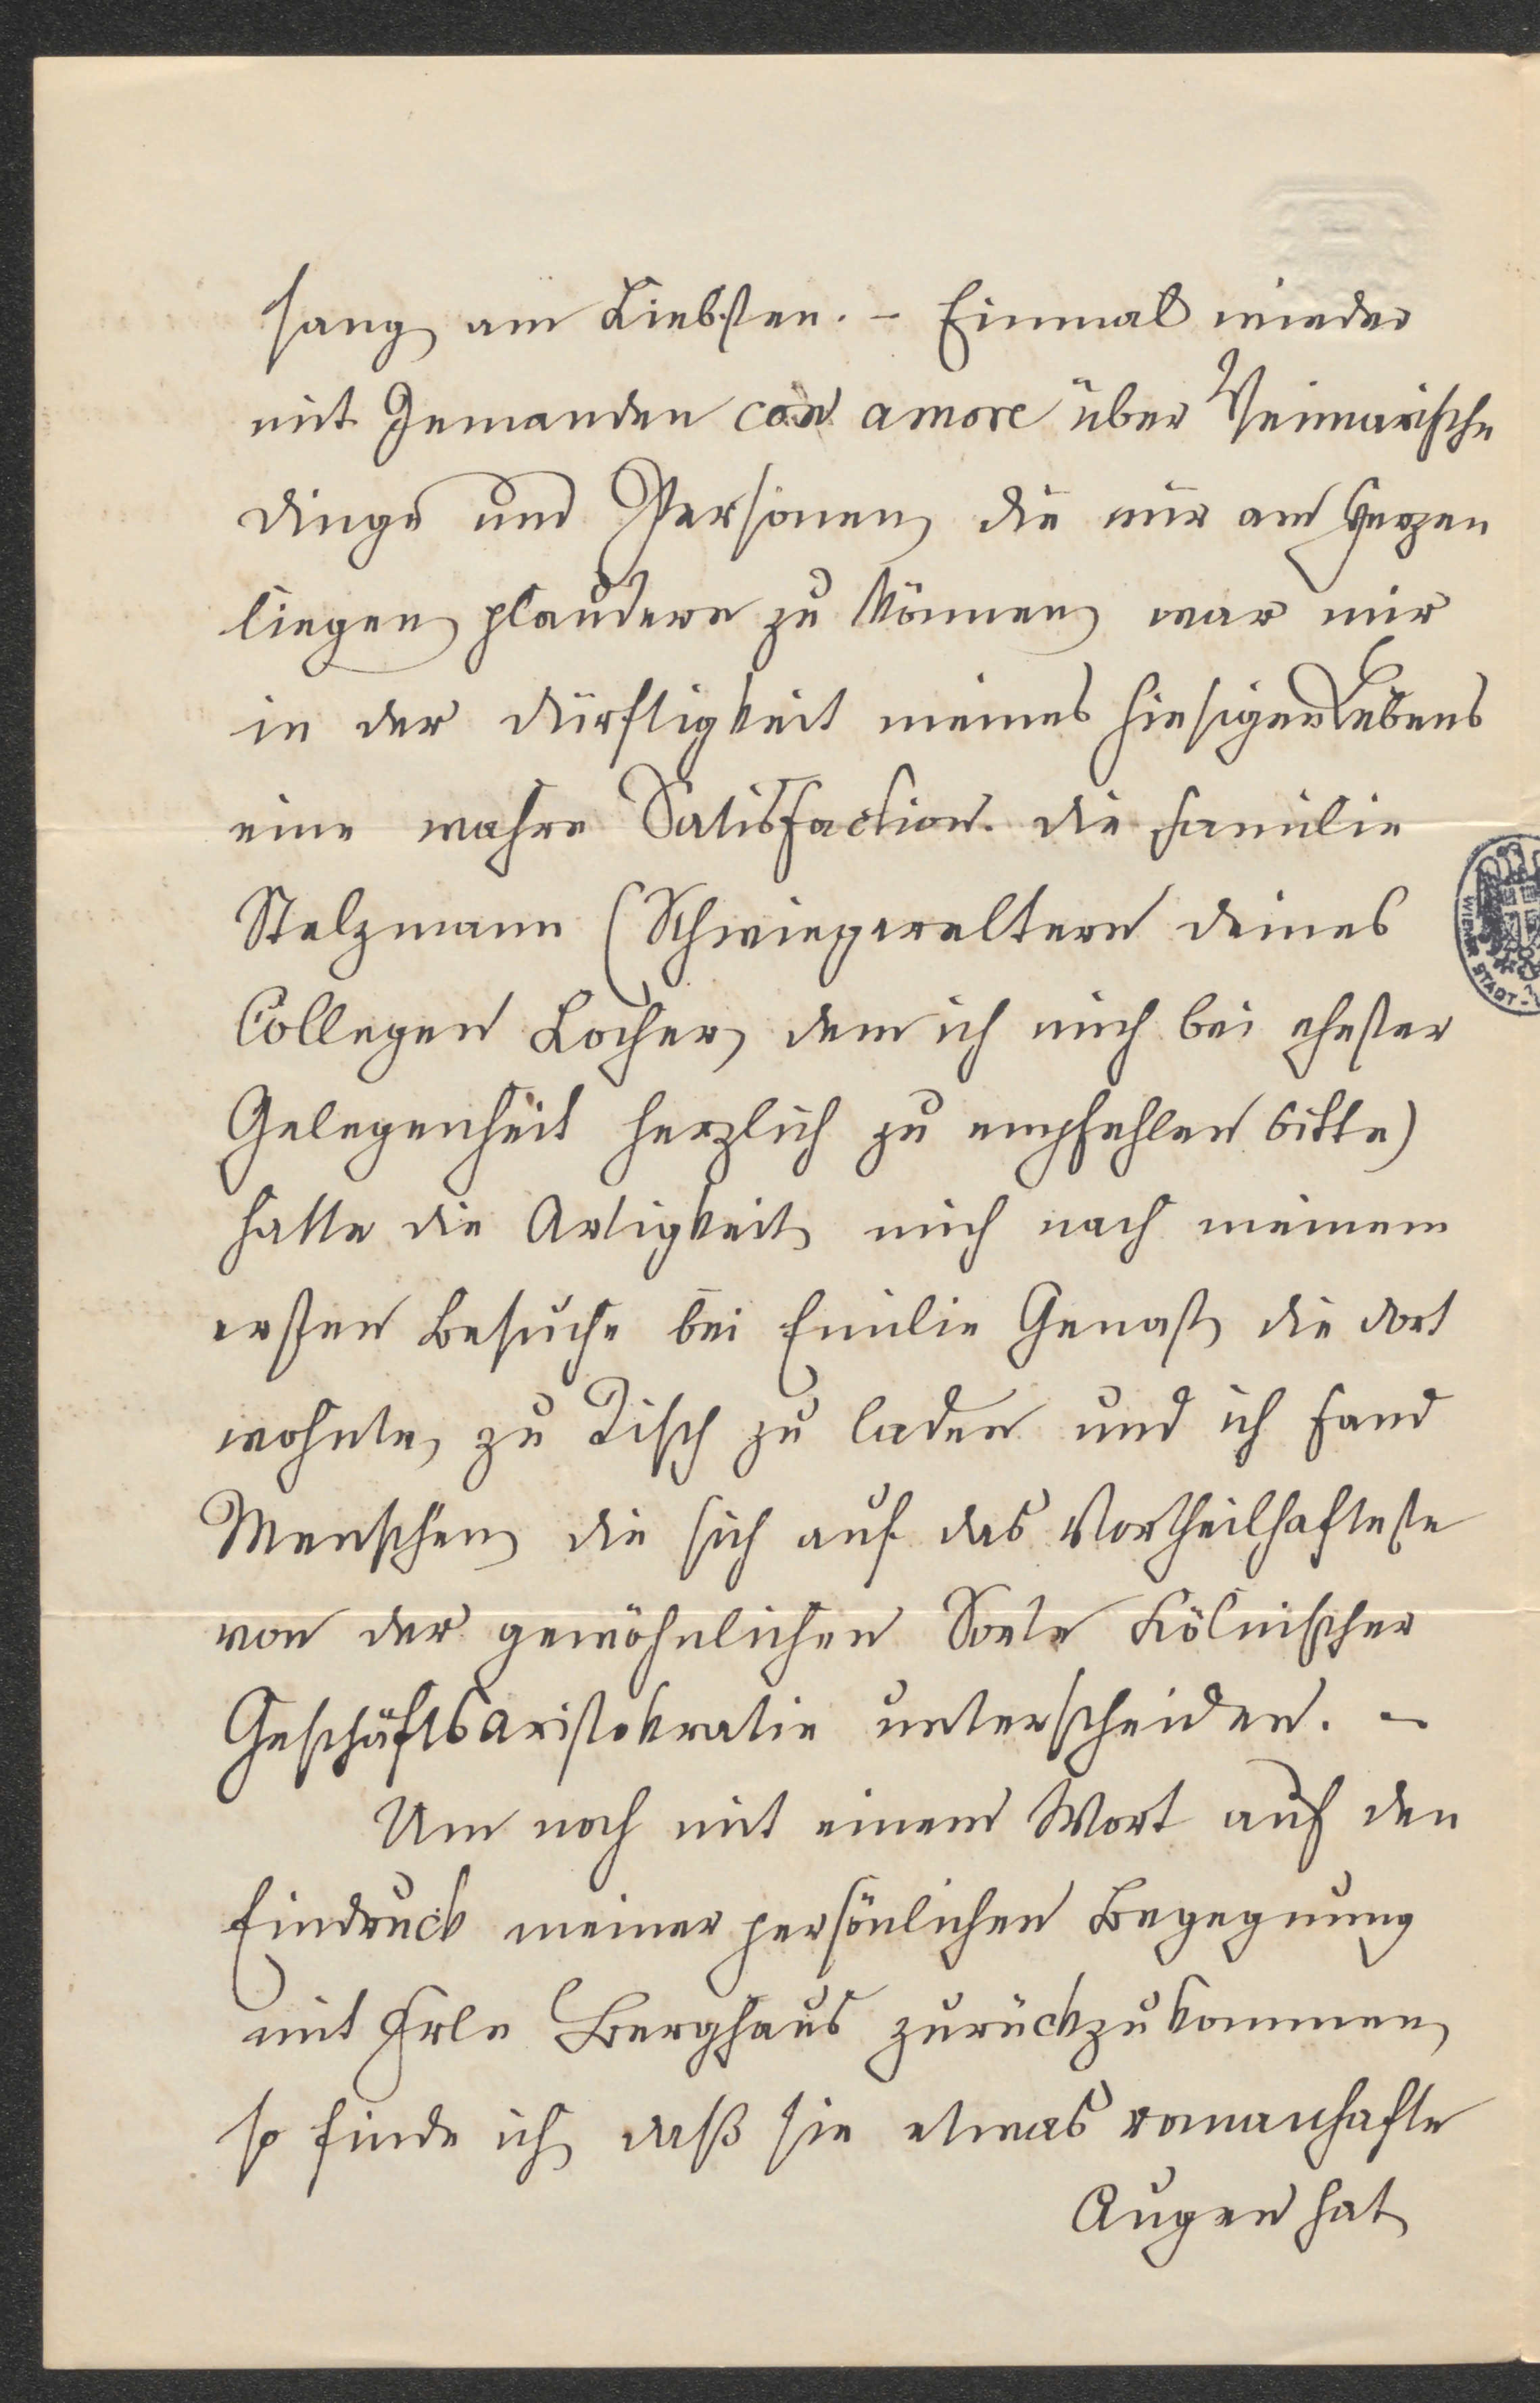 sang am Liebsten. – Einmal wieder
mit Jemanden con amore über Weimarische
Dinge und Personen, die mir am Herzen
liegen, plaudern zu können, war mir
in der Dürftigkeit meines hiesigen Lebens
eine wahre Satisfaction. Die Familie
Stelzmann (Schwiegereltern deines
Collegen Locher, dem ich mich bei ehester
Gelegenheit herzlich zu empfehlen bitte)
hatte die Artigkeit, mich nach meinem
ersten Besuche bei Emilie Genast, die dort
wohnte, zu Tisch zu laden und ich fand
Menschen, die sich auf das Vortheilhafteste
von der gewöhnlichen Sorte Kölnischer
Geschäftsaristokratie unterscheiden. –
Um noch mit einem Wort auf den
Eindruck meiner persönlichen Begegnung
mit Frln Berghaus zurückzukommen,
so finde ich, daß sie etwas romanhafte
Augen hat,
WIENER STADT-